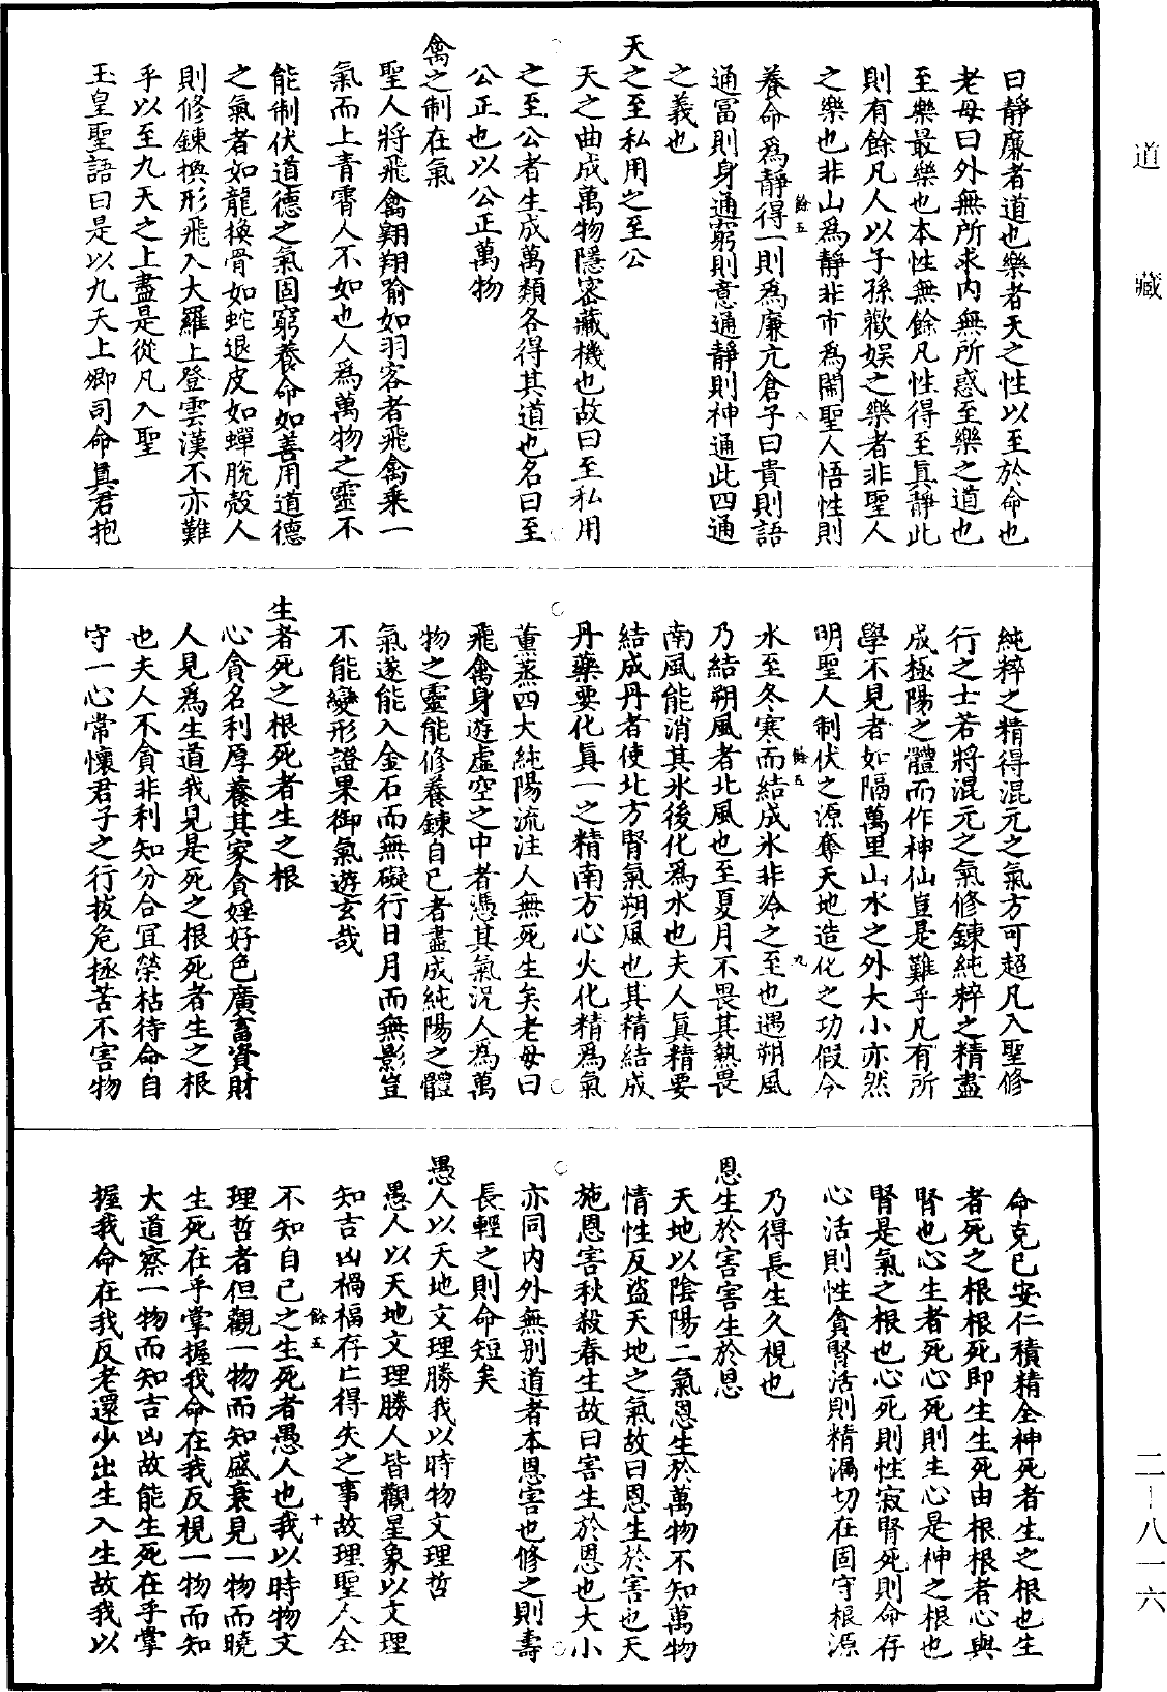 道藏
曰靜廉者道也樂者天之性以至於命也
老母曰外無所求內無所惑至樂之道也
至樂最樂也本性無餘凡性得至真靜此
則有餘凡人以子孫歡娛之樂者非聖人
之樂也非山為靜非市為鬧聖人悟性則
餘五
八
養命為靜得一則為廉亢倉子曰貴則語
通富則身通窮則意通靜則神通此四通
之義也
天之至私用之至公
天之曲成萬物隱密藏機也故曰至私用
之至公者生成萬類各得其道也名曰至
公正也以公正萬物
禽之制在氣
聖人將飛禽翱翔喻如羽客者飛禽乘一
氣而上青霄人不如也人為萬物之靈不
能制伏道德之氣固窮養命如善用道德
之氣者如龍換骨如蛇退皮如蟬脫殼人
則修鍊換形飛入大羅上登雲漢不亦難
乎以至九天之上盡是從凡入聖
玉皇聖語曰是以九天上卿司命真君抱
純粹之精得混元之氣方可超凡入聖修
行之士若將混元之氣修鍊純粹之精盡
成極陽之體而作神仙豈是難乎凡有所
學不見者如隔萬里山水之外大小亦然
明聖人制伏之源奪天地造化之功假令
餘五
九
水至冬寒而結成氷非冷之至也遇朔風
乃結朔風者北風也至夏月不畏其熱畏
南風能消其氷後化為水也夫人真精要
結成丹者使北方腎氣朔風也其精結成
丹藥要化真一之精南方心火化精為氣
薰蒸四大純陽流注人無死生矣老母曰
飛禽身遊虛空之中者憑其氣況人為萬
物之靈能修養鍊自己者盡成純陽之體
氣遂能入金石而無礙行日月而無影豈
不能變形證果御氣遊玄哉
生者死之根死者生之根
心貪名利厚養其家貪婬好色廣畜資財
人見為生道我見是死之根死者生之根
也夫人不貪非利知分合宜榮枯待命自
守一心常懷君子之行拔危極苦不害物
命克己安仁積精全神死者生之根也生
者死之根根死即生生死由根根者心與
腎也心生者死心死則生心是神之根也
腎是氣之根也心死則性寂腎死則命存
心活則性貪腎活則精漏切在固守根源
乃得長生久視也
恩生於害害生於恩
天地以陰陽二氣恩生於萬物不知萬物
情性反盜天地之氣故曰恩生於害也天
施恩害秋殺春生故曰害生於恩也大小
亦同內外無別道者本恩害也修之則壽
長輕之則命短矣
愚人以天地文理勝我以時物文理哲
愚人以天地文理勝人皆觀星象以文理
知吉凶禍福存亡得失之事故理聖人全
餘五
十
不知自己之生死者愚人也我以時物文
理哲者但觀一物而知盛衰見一物而曉
生死在乎掌握我命在我反視一物而知
大道察一物而知吉凶故能生死在乎掌
握我命在我反老還少出生入生故我以
二一八一六